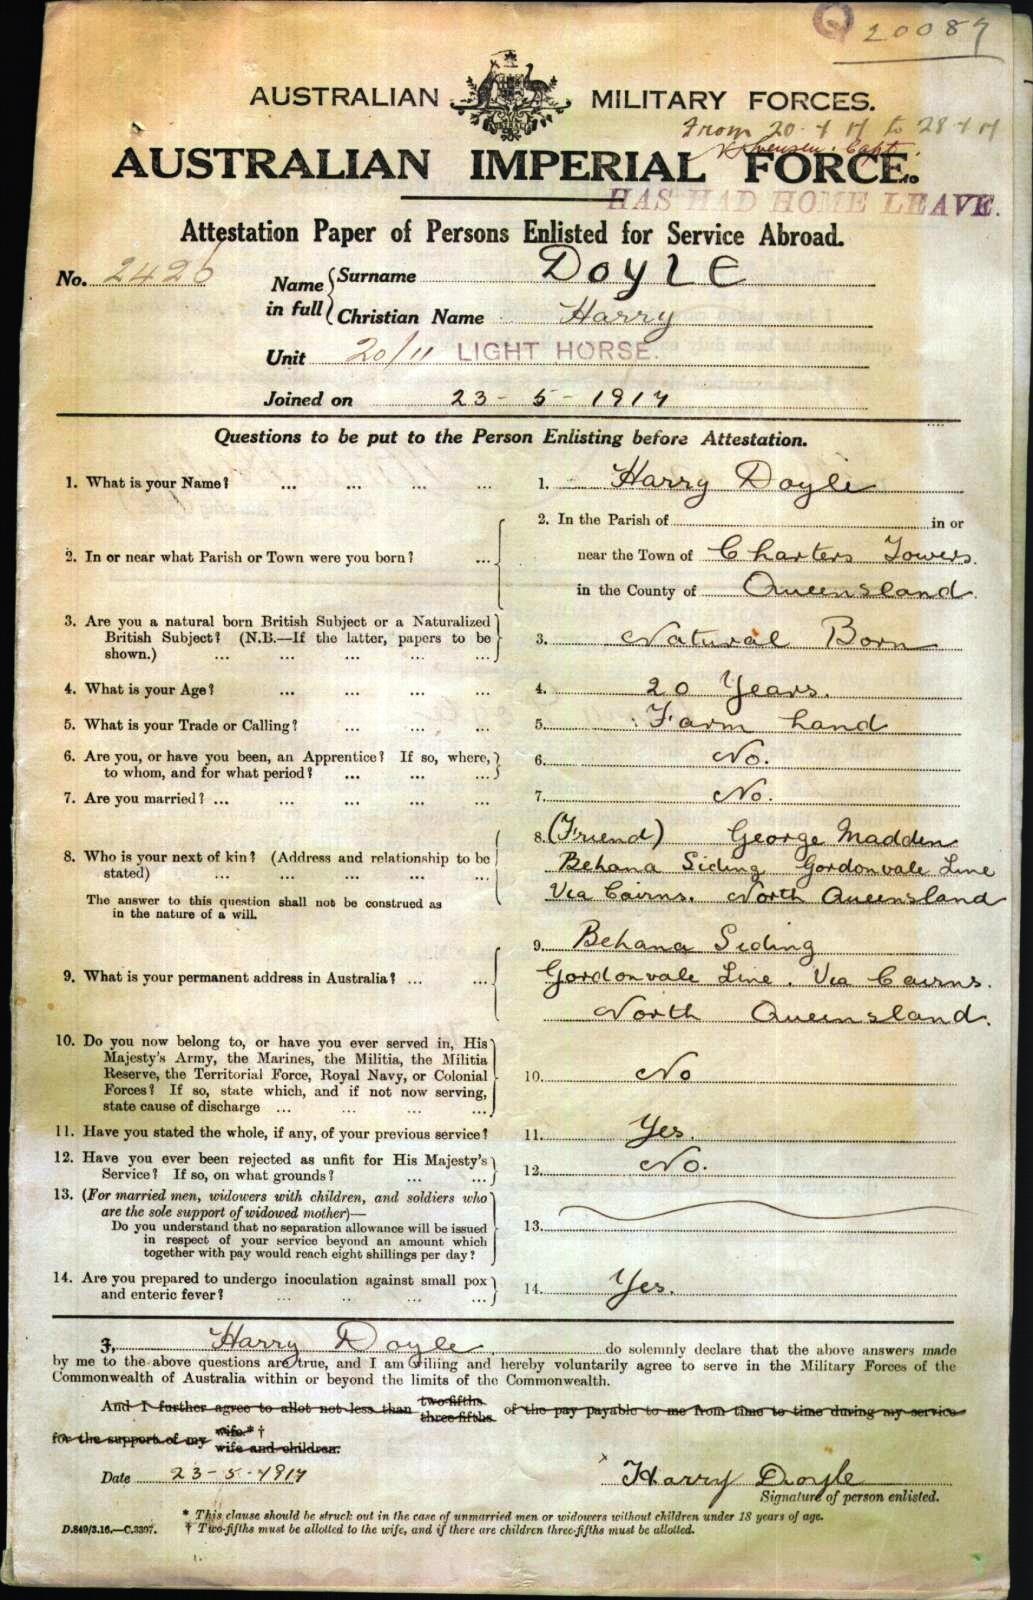 20089
AUSTRALIAN MILITARY FORCES.
From 20-7-17 to 28-7-17
Capt.
AUSTRALIAN IMPERIAL FORCE.
HAS HAD HOME LEAVE.
Attestation Paper of Persons Enlisted for Service Abroad.
No. 2426
Name in full { Surname DOYLE
Christian Name Harry
Unit 20/11 LIGHT HORSE.
Joined on 23-5-1917
Questions to be put to the Person Enlisting before Attestation.
1. What is your Name? ... ... ... ... 1. Harry Doyle
2. In or near what Parish or Town were you born? ... 2. In the Parish of in or
near the Town of Charters Towers.
in the County of Queensland
3. Are you a natural born British Subject or a Naturalized
British Subject? (N.B.—If the latter, papers to be
shown.) ... ... ... ... ... 3. Natural Born
4. What is your Age? ... ... ... ... 4. 20 Years.
5. What is your Trade or Calling? ... ... ... 5. Farm hand
6. Are you, or have you been, an Apprentice? If so, where,
to whom, and for what period? ... ... ... 6. No.
7. Are you married? ... ... ... ... ... 7. No.
8. Who is your next of kin? (Address and relationship to be
stated) ... ... ... ... ...
The answer to this question shall not be construed as
in the nature of a will.
8. (Friend) George Madden
Behana Siding Gordonvale Line
Via Cairns. North Queensland
9. What is your permanent address in Australia? ... ...
9. Behana Siding
Gordonvale Line. Via Cairns.
North Queensland.
10. Do you now belong to, or have you ever served in, His
Majesty's Army, the Marines, the Militia, the Militia
Reserve, the Territorial Force, Royal Navy, or Colonial
Forces? If so, state which, and if not now serving,
state cause of discharge ... ... ... ...
10. No
11. Have you stated the whole, if any, of your previous service? 11. Yes.
12. Have you ever been rejected as unfit for His Majesty's
Service? If so, on what grounds? ... ... 12. No.
13. (For married men, widowers with children, and soldiers who
are the sole support of widowed mother)—
Do you understand that no separation allowance will be issued
in respect of your service beyond an amount which
together with pay would reach eight shillings per day?
13.
14. Are you prepared to undergo inoculation against small pox
and enteric fever? ... ... ... ... 14. Yes.
I, Harry Doyle, do solemnly declare that the above answers made
by me to the above questions are true, and I am willing and hereby voluntarily agree to serve in the Military Forces of the
Commonwealth of Australia within or beyond the limits of the Commonwealth.
And I further agree to allot not less than two-fifths three-fifths of the pay payable to me from time to time during my service
for the support of my wife.* † wife and children.
Date 23-5-1917 Harry Doyle
Signature of person enlisted.
* This clause should be struck out in the case of unmarried men or widowers without children under 18 years of age.
D.849/3.16.—C.3397. † Two-fifths must be allotted to the wife, and if there are children three-fifths must be allotted.